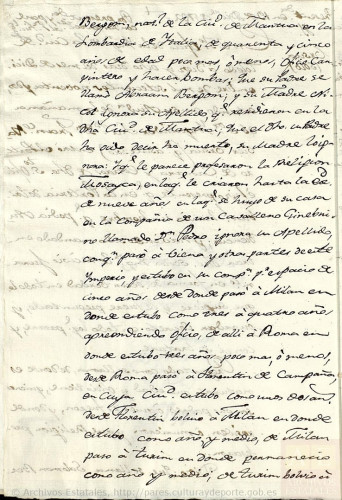 Bergom, nat.l de la Ciu.d de Mantua en la
Lombardia de Italia, de quarenta y cinco
años de edad poco mas, ó menos, Oficio Car
pintero y hacer bombas, que su Padre se
llamó Abraàm Bergom, y su Madre
ignora su Apellido, q.e residieron en la
dha Ciu.d de Mantua, que el dho su Padre
ha oido decir ha muerto, su Madre lo ig
nora: q.e le parece profesaron la Religion
Mosayca, en la q.e le criaron hasta la ed.d
de nueve años en la q.e se huyó de su casa
en la Compañia de un Cavallero Ginebri
no llamado D.n Pedro ignora su Apellido,
con q.n pasó à Viena y otras partes de este
Imperio y estubo en su comp.a p.r espacio de
cinco años desde donde pasó à Milan en
donde estubo como tres à quatro años
aprendiendo oficio, de alli à Roma en
donde estubo tres años poco mas ó menos,
desde Roma pasó à Florentin de Campaña,
en cuya Ciu.d estubo como unos dos añ.s
desde Florentin bolvio à Milan en donde
estubo como año y medio, de Milan
pasó à turin en donde permanecio
como año y medio, de turin bolvio à
Archivos Estatales, http://pares.culturaydeporte.gob.es